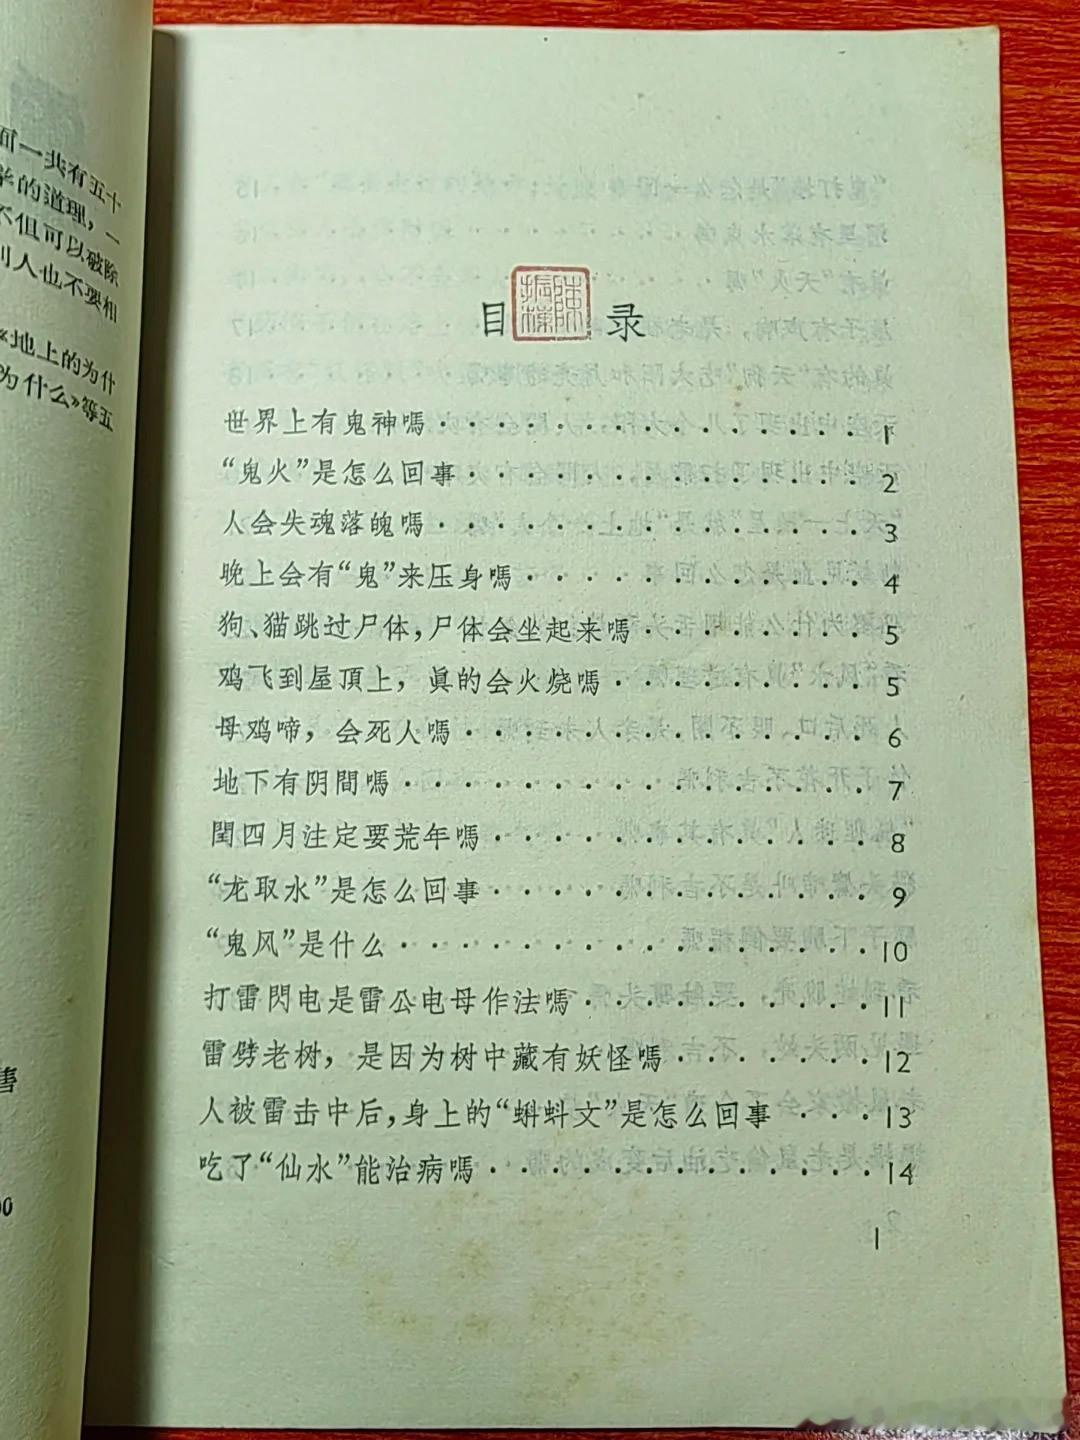 面一共有五十
学的道理，一
不但可以破除
别人也不要相
«地上的为什
为什么»等五
售
00
目录
陈振栋
世界上有鬼神嗎·················1
“鬼火”是怎么回事···············2
人会失魂落魄嗎·················3
晚上会有“鬼”来压身嗎············4
狗、猫跳过尸体，尸体会坐起来嗎·······5
鸡飞到屋頂上，眞的会火烧嗎·········5
母鸡啼，会死人嗎···············6
地下有阴間嗎··················7
閏四月注定要荒年嗎··············8
“龙取水”是怎么回事··············9
“鬼风”是什么·················10
打雷閃电是雷公电母作法嗎··········11
雷劈老树，是因为树中藏有妖怪嗎·······12
人被雷击中后，身上的“蝌蚪文”是怎么回事···13
吃了“仙水”能治病嗎·············14
1